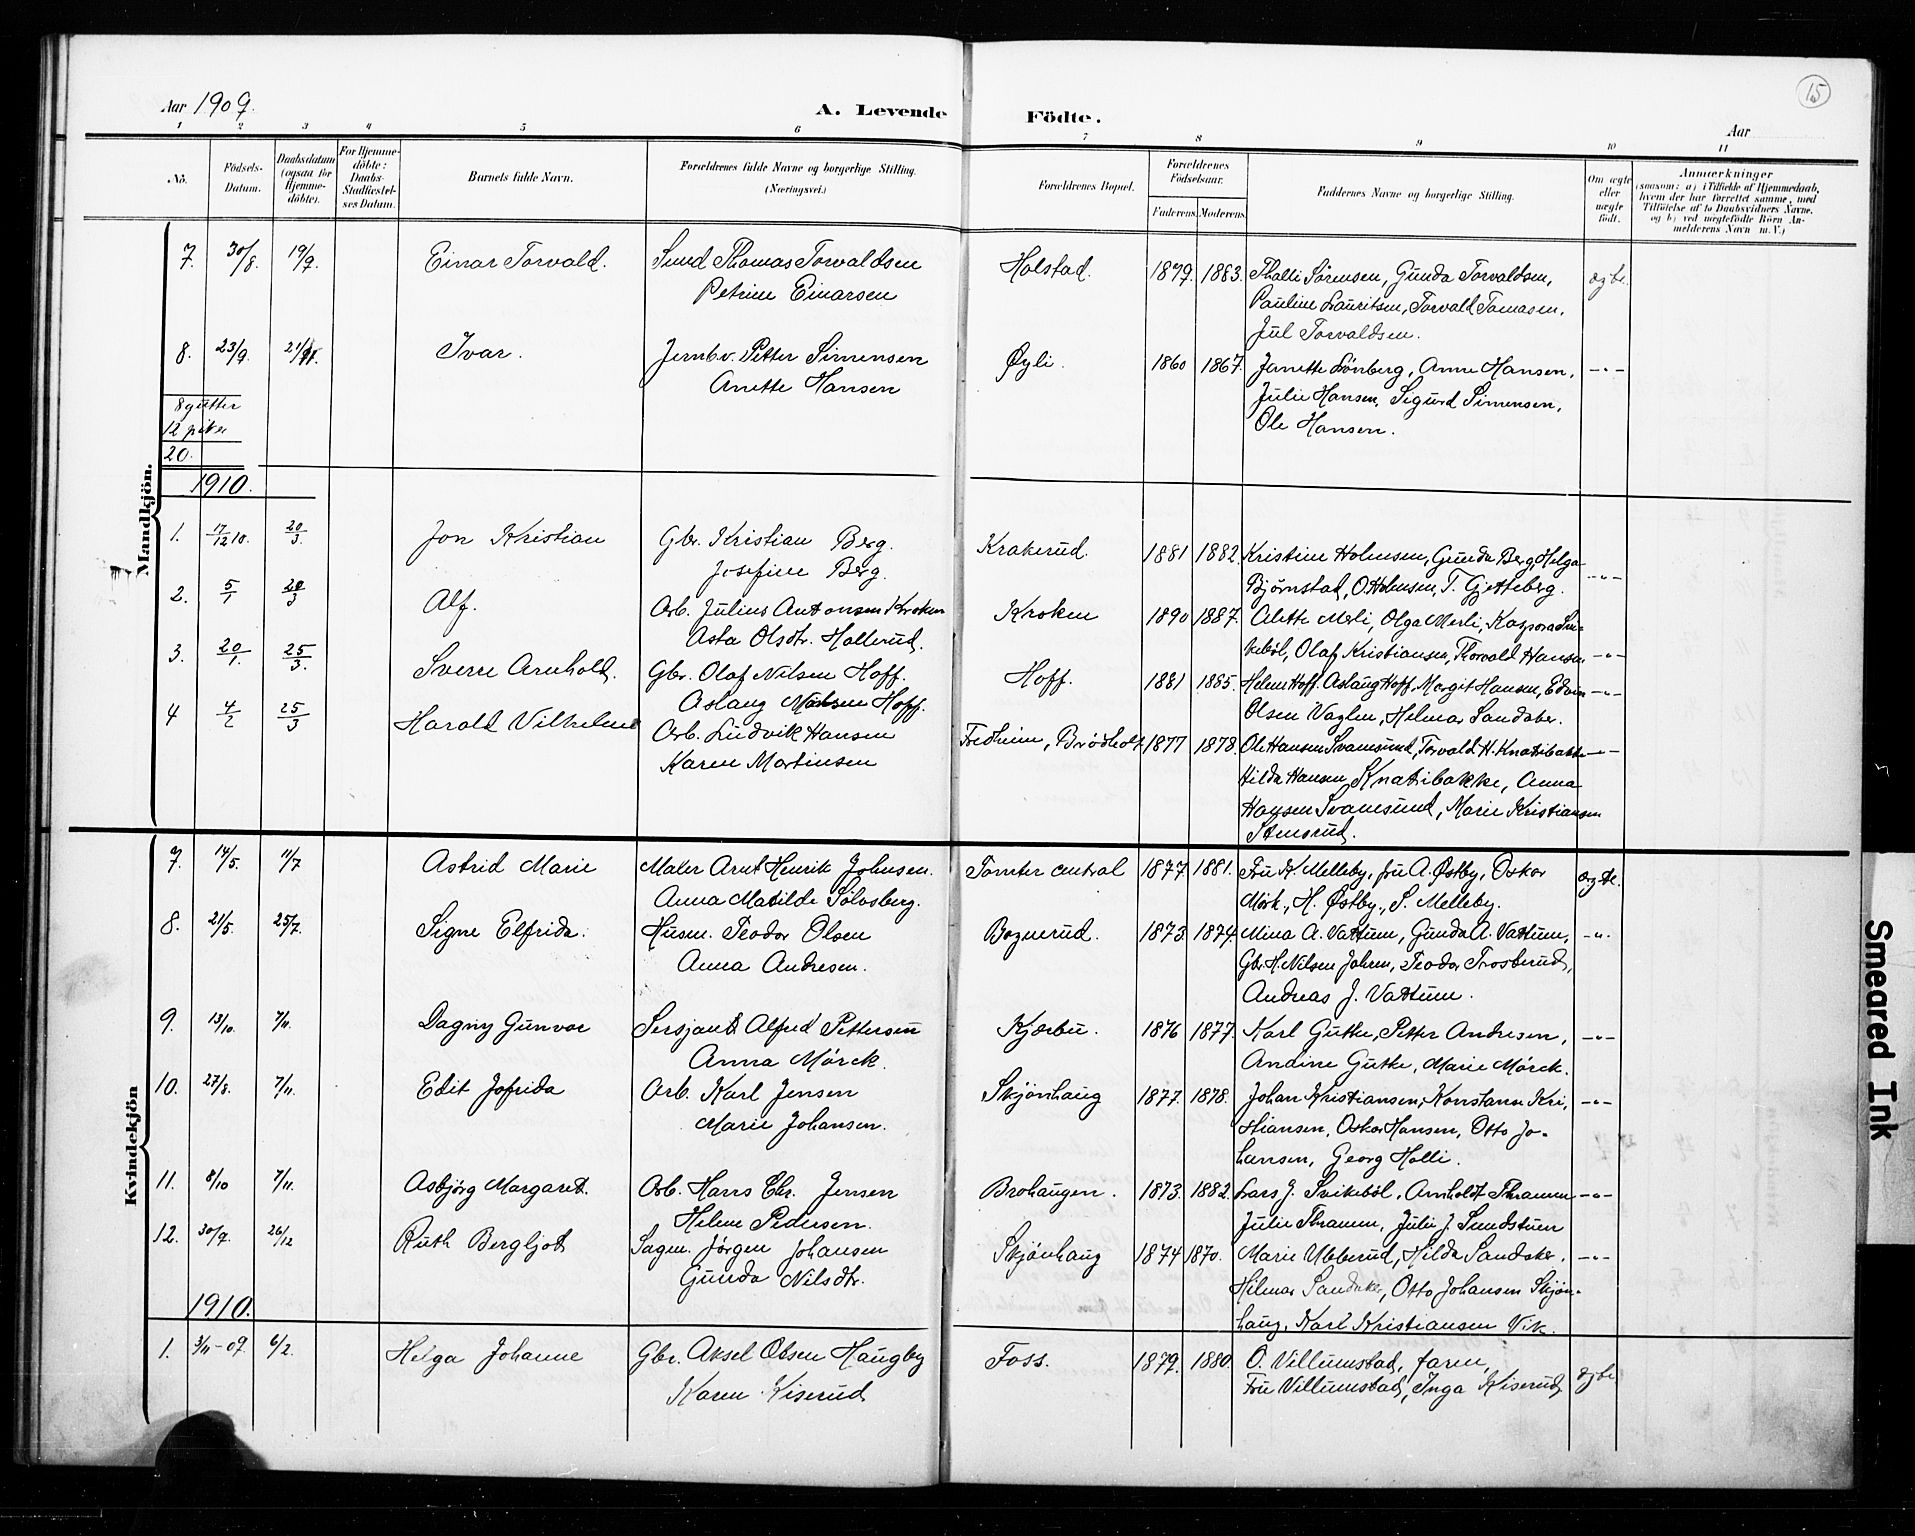 15
Aar 1909. A. Levende Födte. Aar
1 2 3 4 5 6 7 8 9 10 11
No. Födsels-Datum. Daabsdatum (ogsaa for Hjemme-döbte). For Hjemme-döbte: Daabs-Stadfæstel-ses Datum. Barnets fulde Navn. Forældrenes fulde Navne og borgerlige Stilling. (Næringsvei.) Forældrenes Bopæl. Forældrenes Födselsaar. Faderens. Moderens. Faddernes Navne og borgerlige Stilling. Om ægte eller uægte födt. Anmærkninger (saasom: a) i Tilfælde af Hjemmedaab, hvem der har forrettet samme, med Tilföielse af to Daabsvidners Navne, og b) ved uægtefödte Börn An-melderens Navn m. V.)
Mandkjön.
7. 30/8. 19/9. Einar Torvald. Smed Thomas Torvaldsen Holstad. 1879. 1883. Thalli Sørensen, Gunda Torvaldsen, ægte.
Petrine Einarsen Pauline Lauritsen, Torvald Tomasen,
Jul Torvaldsen.
8. 23/9. 21/11. Ivar. Jernbv. Petter Simensen Øyli. 1860 1867. Janette Lönberg, Anne Hansen, -"-
Anette Hansen Julie Hansen, Sigurd Simensen,
Ole Hansen.
8 gutter
12 piker
20.
1910.
1. 17/12 10. 20/3. Jon Kristian Gbr. Kristian Berg. Krakerud. 1881 1882. Kristine Holmsen, Gunda Berg, Helga -"-
Josefine Berg. Bjørnstad, O. Holmsen, T. Gjetteberg.
2. 5/1 20/3 Alf. Arb. Julius Antonsen Kroken Kroken 1890 1887. Alette Merli, Olga Merli,
Asta Olsdtr. Hollerud. Olaf Kristiansen, Thorvald Hansen -"-
3. 20/1. 25/3. Sverre Arnhold. Gbr. Olaf Nilsen Hoff. Hoff. 1881 1885. Helene Hoff, Aslaug Hoff, Margit Hansen, Edvin -"-
Aslaug Hoff. Olsen Vaglen, Helmar Sandaker.
4 4/2 25/3 Harald Vilhelm Arb. Ludvik Hansen Fredheim, Brødholt 1877 1878. Ole Hansen Svamsund, Torvald H. Knatibakke -"-
Karen Martinsen Hilda Hansen Knatibakke, Anna
Hansen Svamsund, Marie Kristiansen
Stensrud.
Kvindekjön
7. 14/5. 11/7 Astrid Marie Maler Arnt Henrik Johnsen. Tomter central 1877. 1881. Fru K. Melleby, fru A. Østby, Oskar ægte.
Anna Matilde Solvsberg. Mörk, H. Østby, S. Melleby.
8. 21/5. 25/7. Signe Elfrida. Husm. Teodor Olsen Bognerud. 1873. 1874. Mina A. Vattum, Gunda A. Vattum, -"-
Anna Andresen. Gbr. H. Nilsen Jahren, Teodor Trosterud,
Andreas J. Vattum.
9. 13/10. 7/11. Dagny Gunvor Sersjant Alfred Pettersen Kjærbu. 1876 1877. Karl Gutke, Petter Andresen, -"-
Anna Mörck. Andine Gutke, Marie Mörck.
10. 27/8. 7/11. Edit Jofrida Arb. Karl Jensen Skjönhaug 1877. 1878. Johan Kristiansen, Konstanse Kri- -"-
Marie Johansen. stiansen, Oskar Hansen, Otto Jo-
hansen, Georg Holli.
11. 8/10 7/11. Asbjörg Margaret. Arb. Hans Chr. Jensen Brohaugen. 1873. 1882. Lars J. Svikeböl, Arnholdt Thramm -"-
Helene Pedersen. Julie Thramm, Julie J. Sundstuen
12. 30/9. 26/12 Ruth Bergljot Sagm. Jörgen Johansen Skjönhaug 1874 1870. Marie Ubberud, Hilda Sandaker, -"-
Gunda Nilsdtr. Hilmar Sandaker, Otto Johansen Skjön-
haug, Karl Kristiansen Vik.
1910.
1. 3/11-09. 6/2. Helga Johanne Gbr. Aksel Olsen Haugby Foss. 1879. 1880. O. Villumstad, faren, ægte
Karen Kiserud Fru Villumstad, Inga Kiserud
Smeared Ink